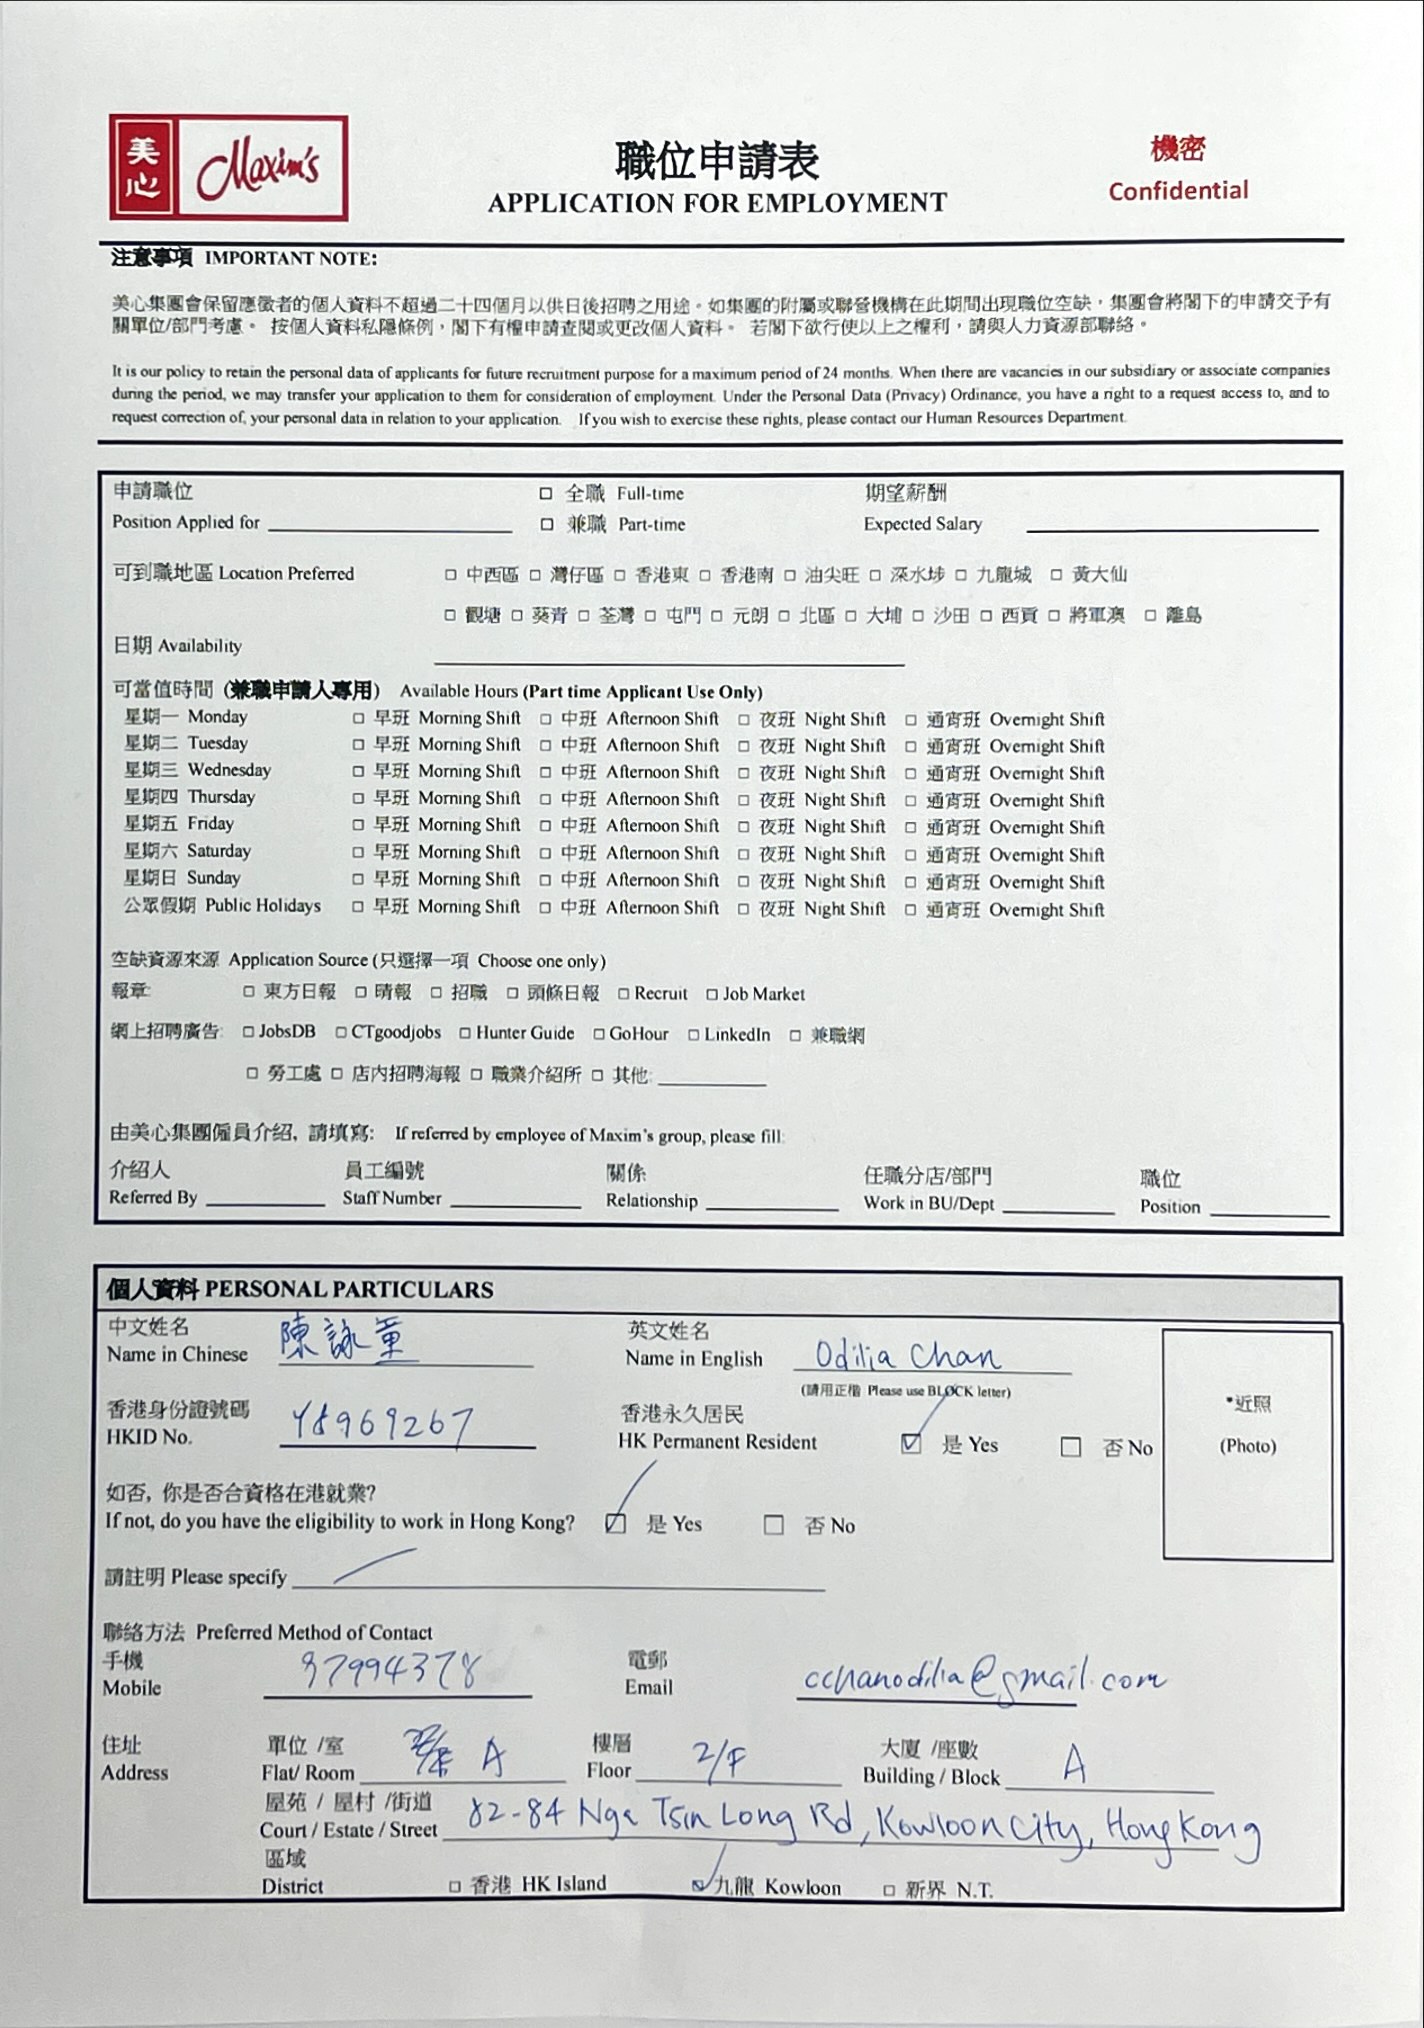 美心 Maxim's
職位申請表
APPLICATION FOR EMPLOYMENT
機密
Confidential
注意事項 IMPORTANT NOTE:
美心集團會保留應徵者的個人資料不超過二十四個月以供日後招聘之用途。如集團的附屬或聯營機構在此期間出現職位空缺，集團會將閣下的申請交予有
關單位/部門考慮。 按個人資料私隱條例，閣下有權申請查閱或更改個人資料。 若閣下欲行使以上之權利，請與人力資源部聯絡。
It is our policy to retain the personal data of applicants for future recruitment purpose for a maximum period of 24 months. When there are vacancies in our subsidiary or associate companies
during the period, we may transfer your application to them for consideration of employment. Under the Personal Data (Privacy) Ordinance, you have a right to a request access to, and to
request correction of, your personal data in relation to your application. If you wish to exercise these rights, please contact our Human Resources Department.
申請職位 □ 全職 Full-time 期望薪酬
Position Applied for □ 兼職 Part-time Expected Salary
可到職地區 Location Preferred □ 中西區 □ 灣仔區 □ 香港東 □ 香港南 □ 油尖旺 □ 深水埗 □ 九龍城 □ 黃大仙
□ 觀塘 □ 葵青 □ 荃灣 □ 屯門 □ 元朗 □ 北區 □ 大埔 □ 沙田 □ 西貢 □ 將軍澳 □ 離島
日期 Availability
可當值時間 (兼職申請人專用) Available Hours (Part time Applicant Use Only)
星期一 Monday □ 早班 Morning Shift □ 中班 Afternoon Shift □ 夜班 Night Shift □ 通宵班 Overnight Shift
星期二 Tuesday □ 早班 Morning Shift □ 中班 Afternoon Shift □ 夜班 Night Shift □ 通宵班 Overnight Shift
星期三 Wednesday □ 早班 Morning Shift □ 中班 Afternoon Shift □ 夜班 Night Shift □ 通宵班 Overnight Shift
星期四 Thursday □ 早班 Morning Shift □ 中班 Afternoon Shift □ 夜班 Night Shift □ 通宵班 Overnight Shift
星期五 Friday □ 早班 Morning Shift □ 中班 Afternoon Shift □ 夜班 Night Shift □ 通宵班 Overnight Shift
星期六 Saturday □ 早班 Morning Shift □ 中班 Afternoon Shift □ 夜班 Night Shift □ 通宵班 Overnight Shift
星期日 Sunday □ 早班 Morning Shift □ 中班 Afternoon Shift □ 夜班 Night Shift □ 通宵班 Overnight Shift
公眾假期 Public Holidays □ 早班 Morning Shift □ 中班 Afternoon Shift □ 夜班 Night Shift □ 通宵班 Overnight Shift
空缺資源來源 Application Source (只選擇一項 Choose one only)
報章: □ 東方日報 □ 晴報 □ 招職 □ 頭條日報 □ Recruit □ Job Market
網上招聘廣告: □ JobsDB □ CTgoodjobs □ Hunter Guide □ GoHour □ LinkedIn □ 兼職網
□ 勞工處 □ 店内招聘海報 □ 職業介紹所 □ 其他:
由美心集團僱員介紹, 請填寫: If referred by employee of Maxim's group, please fill:
介紹人 員工編號 關係 任職分店/部門 職位
Referred By Staff Number Relationship Work in BU/Dept Position
個人資料 PERSONAL PARTICULARS
中文姓名 英文姓名
Name in Chinese 陳詠童 Name in English Odilia Chan
(請用正楷 Please use BLOCK letter)
香港身份證號碼 香港永久居民 *近照
HKID No. Y8969267 HK Permanent Resident ☑ 是 Yes □ 否 No (Photo)
如否, 你是否合資格在港就業?
If not, do you have the eligibility to work in Hong Kong? ☑ 是 Yes □ 否 No
請註明 Please specify
聯絡方法 Preferred Method of Contact
手機 電郵
Mobile 97994378 Email cchanodilia@gmail.com
住址 單位 /室 樓層 大廈 /座數
Address Flat/ Room A Floor 2/F Building / Block A
屋苑 / 屋村 /街道
Court / Estate / Street 82-84 Nga Tsin Long Rd, Kowloon City, Hong Kong
區域
District □ 香港 HK Island ☑ 九龍 Kowloon □ 新界 N.T.